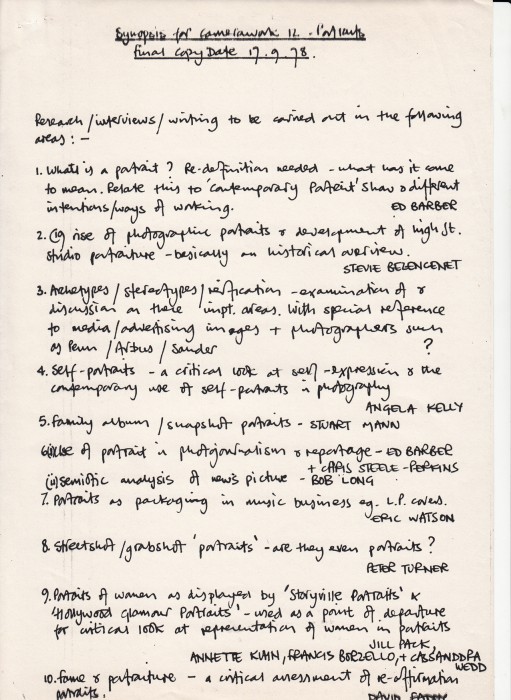 Synopsis for Camerawork 12. Portraits
Final Copy Date 17.9.78.
Research/interviews/writing to be carried out in the following
areas:-
1. What is a portrait? Re-definition needed - what has it come
to mean. Relate this to 'Contemporary Portrait' show & different
intentions/ways of working.
ED BARBER
2. rise of photographic portraits & development of high St.
studio portraiture - basically an historical overview.
STEVIE BEZENCENET
3. Archetypes/stereotypes/reification - examination of &
discussion on these impt. areas. With special reference
to media/advertising images + photographers such
as Penn/Arbus/Sander
?
4. Self-portraits - a critical look at self-expression & the
contemporary use of self-portraits in photography
ANGELA KELLY
5. Family album/snapshot portraits - STUART MANN
6(i) Use of portrait in photojournalism & reportage - ED BARBER
+ CHRIS STEELE-PERKINS
(ii) semiotic analysis of news picture - BOB LONG
7. Portraits as packaging in music business eg. L.P. covers.
ERIC WATSON
8. Streetshot/grabshot 'portraits' - are they even portraits?
PETER TURNER
9. Portraits of women as displayed by 'Storyville Portraits' &
'Hollywood Glamour Portraits' - used as a point of departure
for critical look at representation of women in portraits
JILL PACK,
ANNETTE KUHN, FRANCIS BORZELLO, + CASSANDRA
WEDD
10. Fame & portraiture - a critical assessment of re-affirmation
portraits.
DAVID